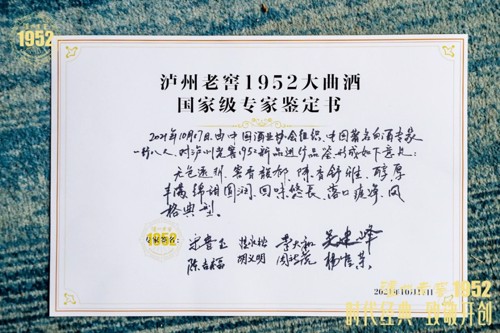 1952
泸州老窖1952大曲酒
国家级专家鉴定书
2021年10月17日,由中国酒业协会组织,中国著名白酒专家
一行八人,对泸州老窖1952新品进行品鉴,形成如下意见:
无色透明、窖香馥郁、陈香舒雅、醇厚
丰满、绵甜圆润、回味悠长、落口爽净、风
格典型。
专家签名:
李大和
陈 胡义明
2021年10月17日
1952
时代经典 致敬开创